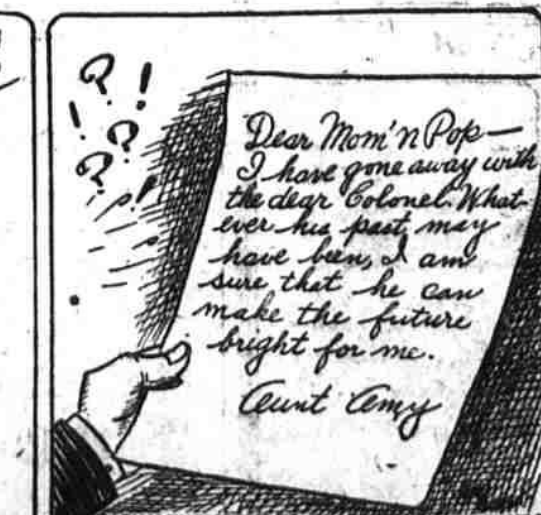 ? !
! ?
?
!
Dear Mom'n Pop—
I have gone away with
the dear Colonel. What-
ever his past may
have been, I am
sure that he can
make the future
bright for me.
Aunt Amy